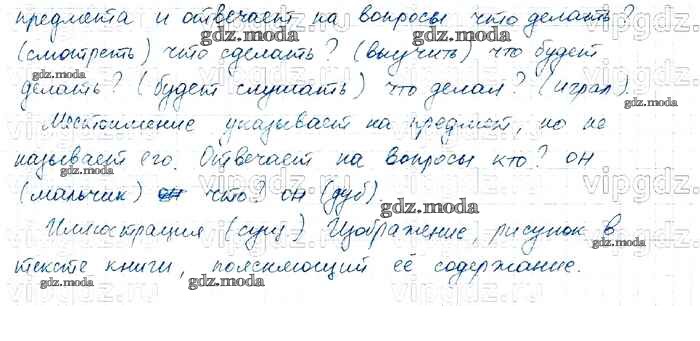 предмета и отвечает на вопросы что делать?
(смотреть) что сделать? (выучить) что будет
делать? (будет слушать) что делал? (играл).
Местоимение указывает на предмет, но не
называет его. Отвечает на вопросы кто? он
(мальчик) он что? он (дуб)
Иллюстрация (сущ.) Изображение, рисунок в
тексте книги, поясняющий её содержание.
gdz.moda
vipgdz.ru